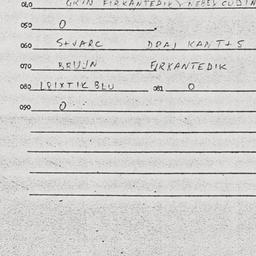 040 GRIN FIRKANTEDIK
050 0
060 SHVARC DRAJ KANT+S
070 BRUJN FIRKANTEDIK
080 LQIXTIK BLU 081 0
090 0